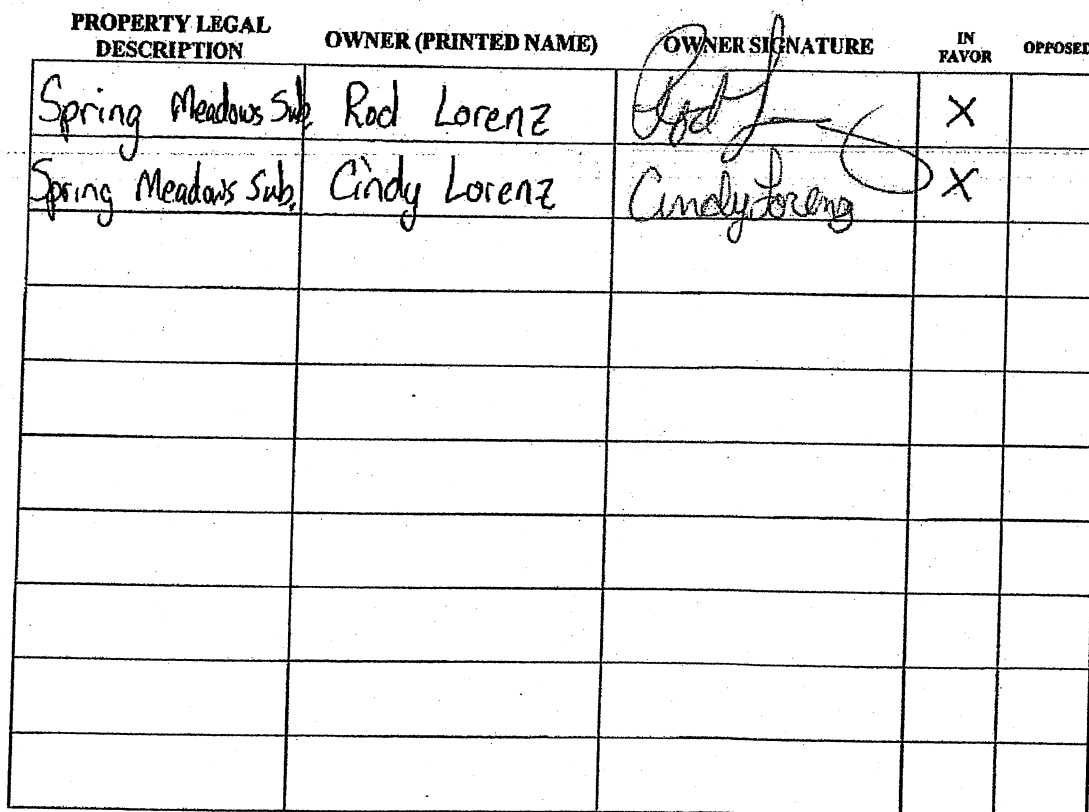 PROPERTY LEGAL DESCRIPTION OWNER (PRINTED NAME) OWNER SIGNATURE IN FAVOR OPPOSED
Spring Meadows Sub. Rod Lorenz Rod L X
Spring Meadows Sub. Cindy Lorenz Cindy Lorenz X